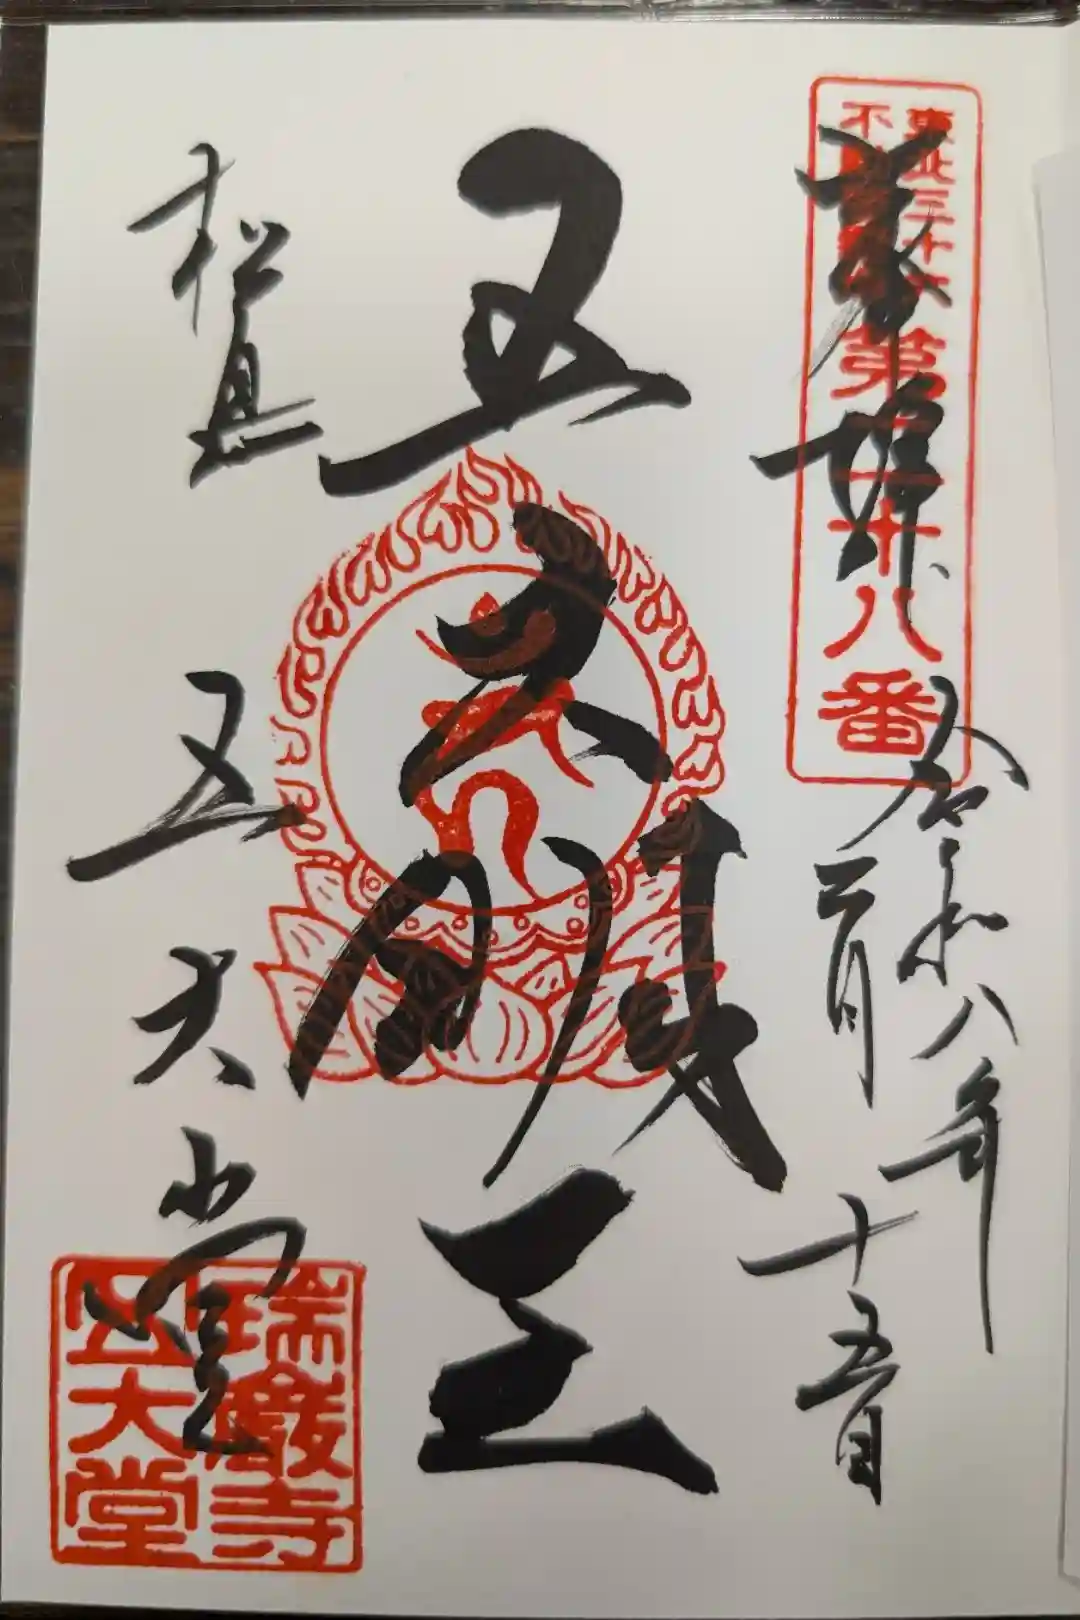 奉拝
東北三十六
不動尊霊場
第二十八番
令和八年
二月十五日
五大明王
松島
五大堂
瑞巌寺
五大堂